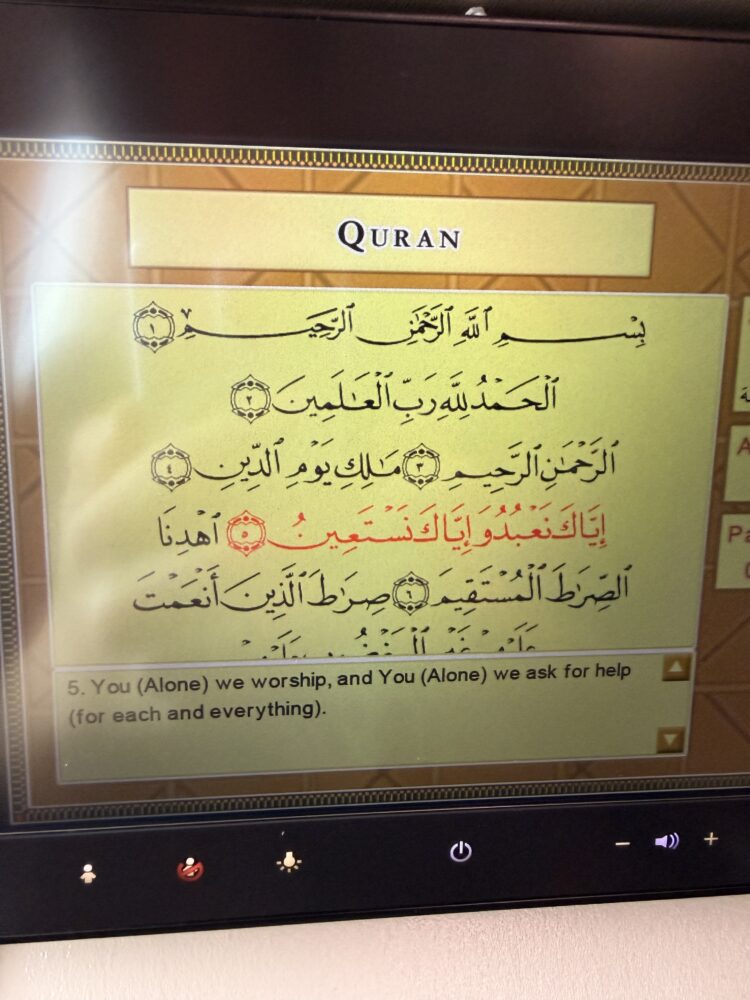 QURAN
بِسْمِ ٱللَّهِ ٱلرَّحْمَٰنِ ٱلرَّحِيمِ ١
ٱلْحَمْدُ لِلَّهِ رَبِّ ٱلْعَٰلَمِينَ ٢
ٱلرَّحْمَٰنِ ٱلرَّحِيمِ ٣ مَٰلِكِ يَوْمِ ٱلدِّينِ ٤
إِيَّاكَ نَعْبُدُ وَإِيَّاكَ نَسْتَعِينُ ٥ ٱهْدِنَا
ٱلصِّرَٰطَ ٱلْمُسْتَقِيمَ ٦ صِرَٰطَ ٱلَّذِينَ أَنْعَمْتَ
5. You (Alone) we worship, and You (Alone) we ask for help
(for each and everything).